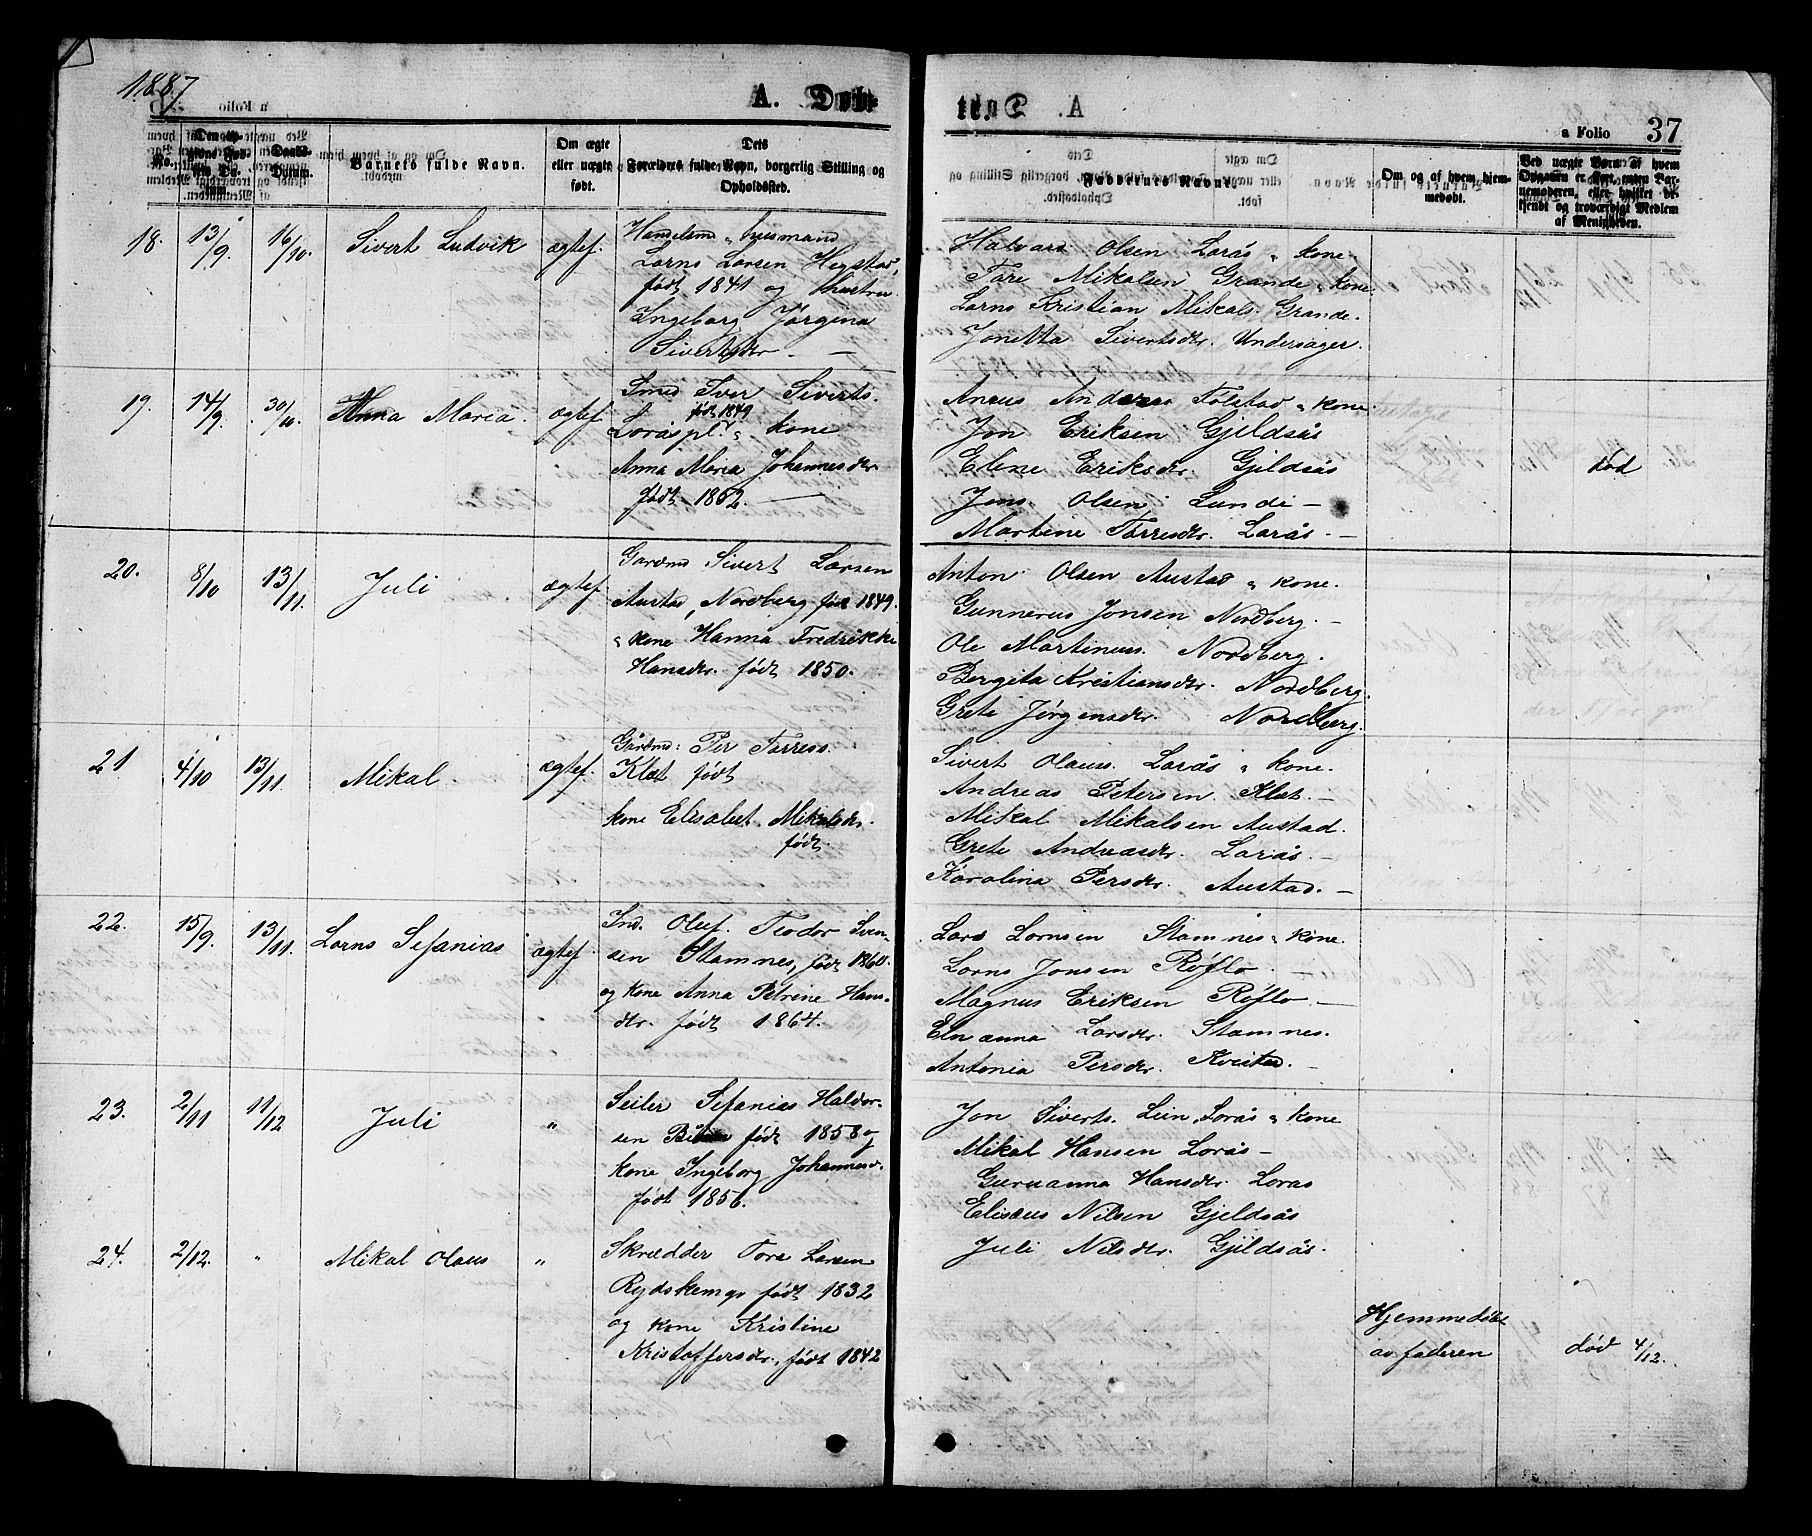 1887
A. Døbt.
a Folio 37
No.
Døbe-Datum.
Barnets fulde Navn.
Om ægte
eller uægte
født.
Dets
Forældres fulde Navn, borgerlig Stilling og
Opholdssted.
Faddernes Navne.
Om og af hvem hjem-
medøbt.
Ved uægte Børn af hvem
Opgaven er skeet, enten Bar-
nemoderen, eller hvilket be-
kjendt og troværdigt Medlem
af Menigheden.
18. 13/9. 16/10. Sivert Ludvik ægtef.
Handelsmd " husmand
Lorns Larsen Hegstad,
født 1841 og hustru
Ingeborg Jørgina
Sivertsdtr. —
Halvard Olsen Lorås " kone.
Tore Mikalsen Grande " kone.
Lorns Kristian Mikals. Grande.
Jonetta Sivertsdtr. Undersager.
19. 14/9. 30/10. Anna Maria. ægtef.
Smed Iver Siverts.
født 1849
Loråspl. " kone
Anna Maria Johannesdtr.
født 1852. —
Anders Tolstad " kone.
Jon Eriksen Gjeldsås
Elene Eriksdtr. Gjeldsås
Jens Olsen Lunde —
Martine Torresdtr. Lorås. —
død
20. 8/10 13/11. Juli ægtef.
Gardmd Sivert Larsen
Austad, Nordberg født 1849.
" kone Hanna Fredrikke
Hansdtr. født 1850.
Anton Olsen Austad " kone.
Gunnerus Jonsen Nordberg. —
Ole Martinus. Nordberg.
Bergita Kristiansdtr. Nordberg.
Grete Jørgensdtr. Nordberg.
21 4/10 13/11. Mikal. ægtef.
Gårdmd: Per Torress.
Klæt født
kone Elisabet Mikalsdtr.
født.
Sivert Olaus. Lorås " kone.
Andreas Petersen. Klæt. —
Mikal Mikalsen Austad.
Grete Andreasdtr. Lorås. —
Karolina Persdtr. Austad. —
22. 15/9. 13/11. Lorns Sefanias ægtef.
Ind. Oluf. Teodor Sven-
sen Stamnes, født 1860.
og kone Anna Petrine Hans-
dtr. født 1864.
Lars Lornsen Stamnes " kone.
Lorns Jonsen Røflo. —
Magnus Eriksen Røflo —
Elnanna Larsdtr. Stamnes.
Antonia Persdtr. Kvistad. —
23. 2/11 11/12 Juli "
Seiler Sefanias Haldor-
sen født 1858 og
kone Ingeborg Johannesd.
født 1856.
Jon Siverts. Lein, Lorås " kone
Mikal Hansen Lorås —
Guruanna Hansdtr. Lorås
Eliseus Nilsen Gjeldsås
Juli Nilsdtr. Gjeldsås.
24. 2/12. " Mikal Olaus "
Skrædder Tore Larsen
Rydskemgr født 1832
og kone Kristine
Kristoffersdtr., født 1842
Hjemmedøbt
av faderen
død 4/12.